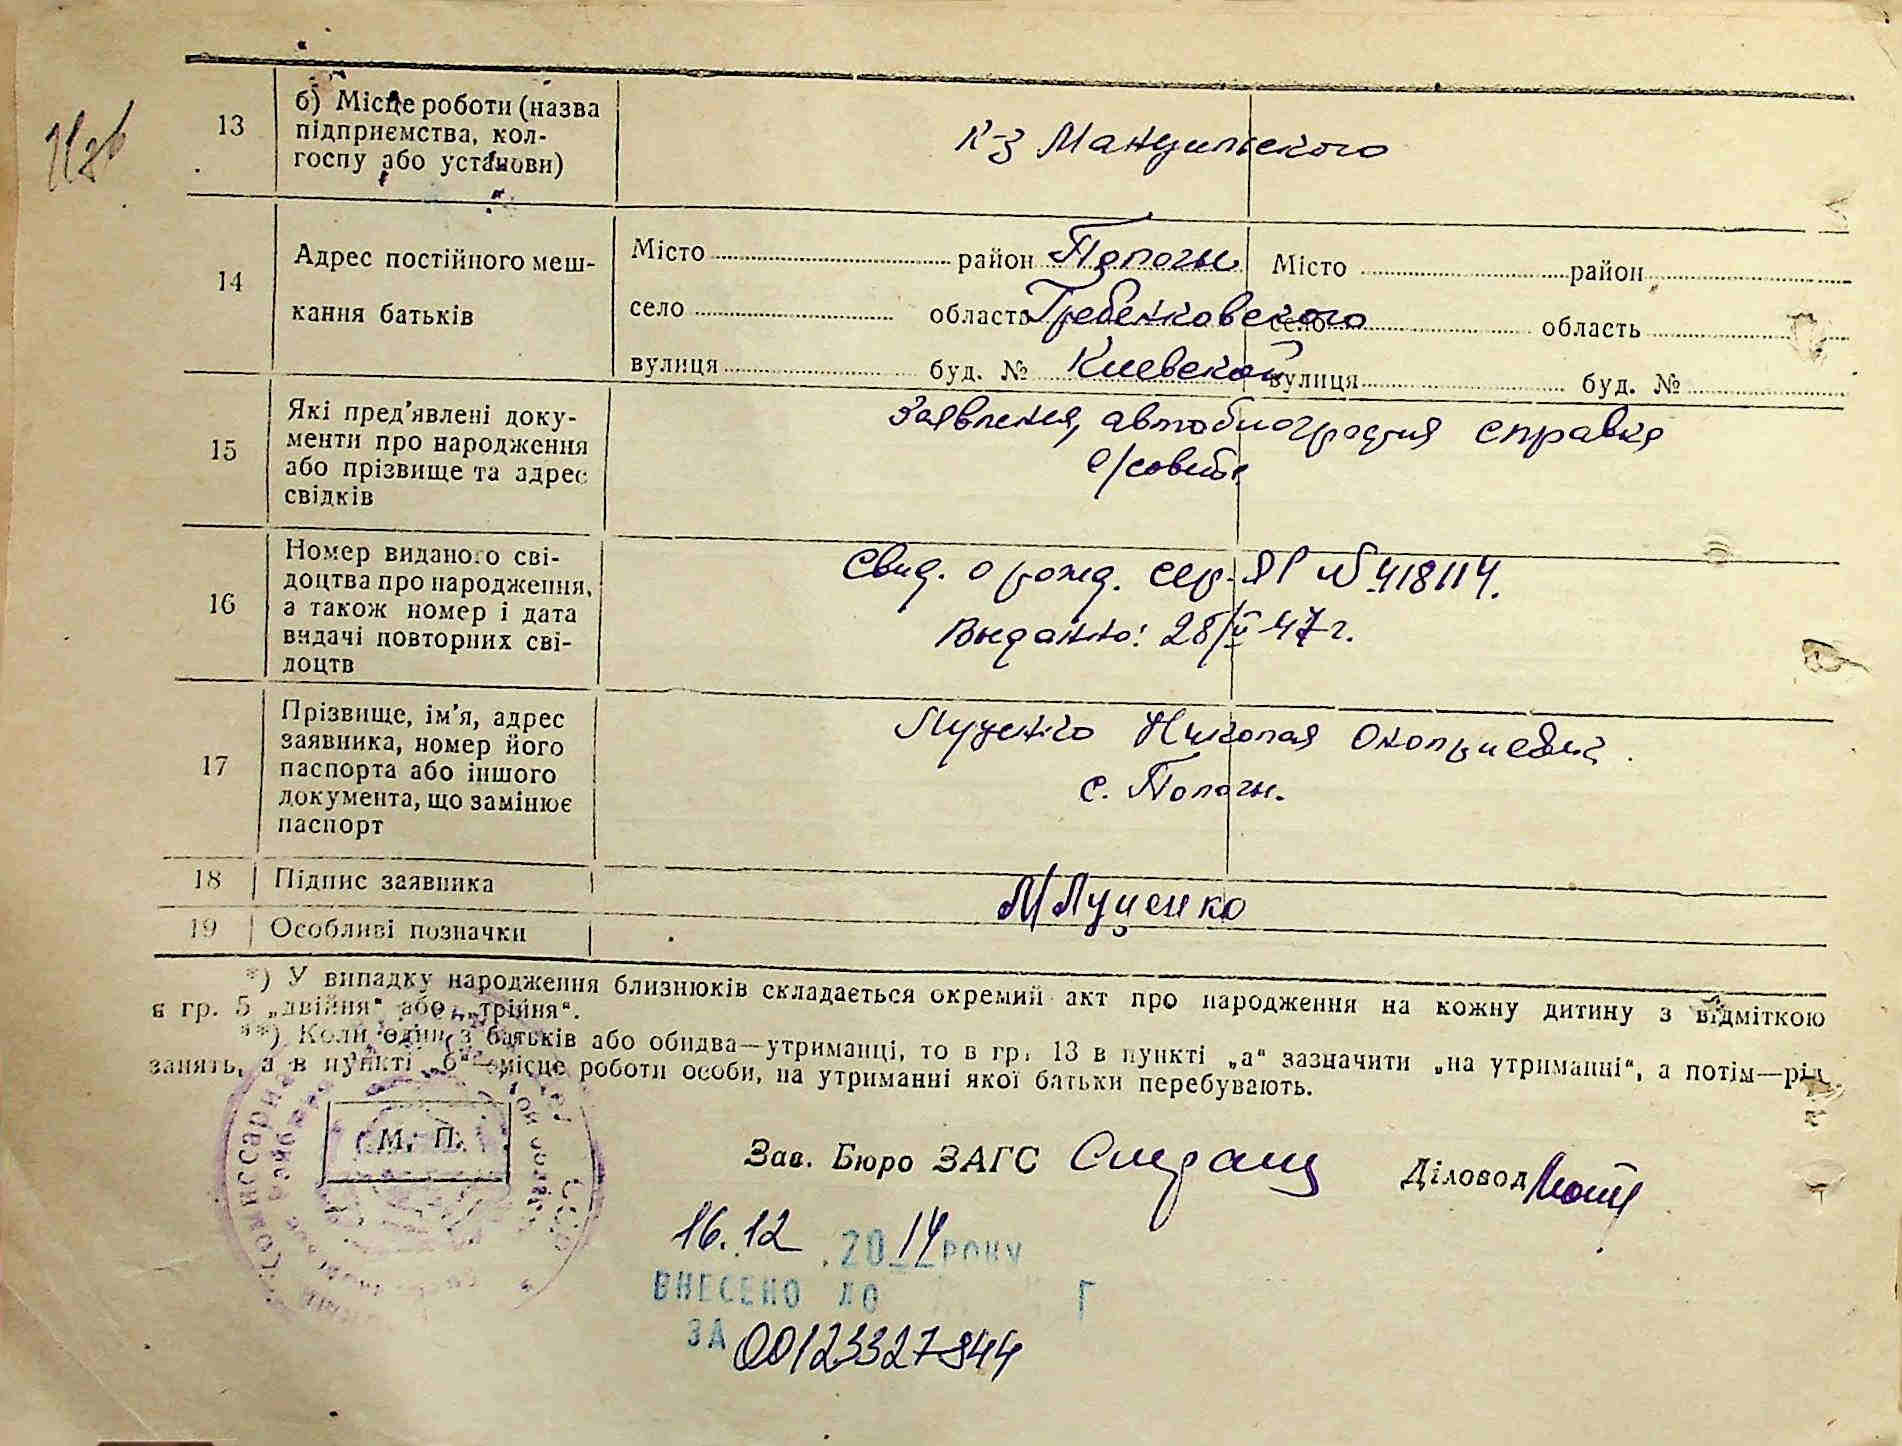 13
б) Місце роботи (назва
підприємства, кол-
госпу або установи)
к-з Мануильского
14
Адрес постійного меш-
кання батьків
Місто район Пологы Місто район
село область Гребенковского село область
вулиця буд. № Киевской вулиця буд. №
15
Які пред'явлені доку-
менти про народження
або прізвище та адрес
свідків
Заявления, автобиография справка
с/совета
16
Номер виданого сві-
доцтва про народження,
а також номер і дата
видачі повторних сві-
доцтв
Свид. о рожд. сер. ЯР № 418114.
Выданно: 28/V 47 г.
17
Прізвище, ім'я, адрес
заявника, номер його
паспорта або іншого
документа, що замінює
паспорт
Луценко Николая
с. Пологы.
18 Підпис заявника
Луценко
19 Особливі позначки
*) У випадку народження близнюків складається окремий акт про народження на кожну дитину з відміткою
в гр. 5 „двійня" або „трійня".
**) Коли один з батьків або обидва—утриманці, то в гр. 13 в пункті „а" зазначити „на утриманні", а потім—рід
занять, а в пункті „б"—місце роботи особи, на утриманні якої батьки перебувають.
М. П.
Зав. Бюро ЗАГС
Діловод
16.12 .2014 РОКУ
ВНЕСЕНО ДО Г
ЗА 00123327844